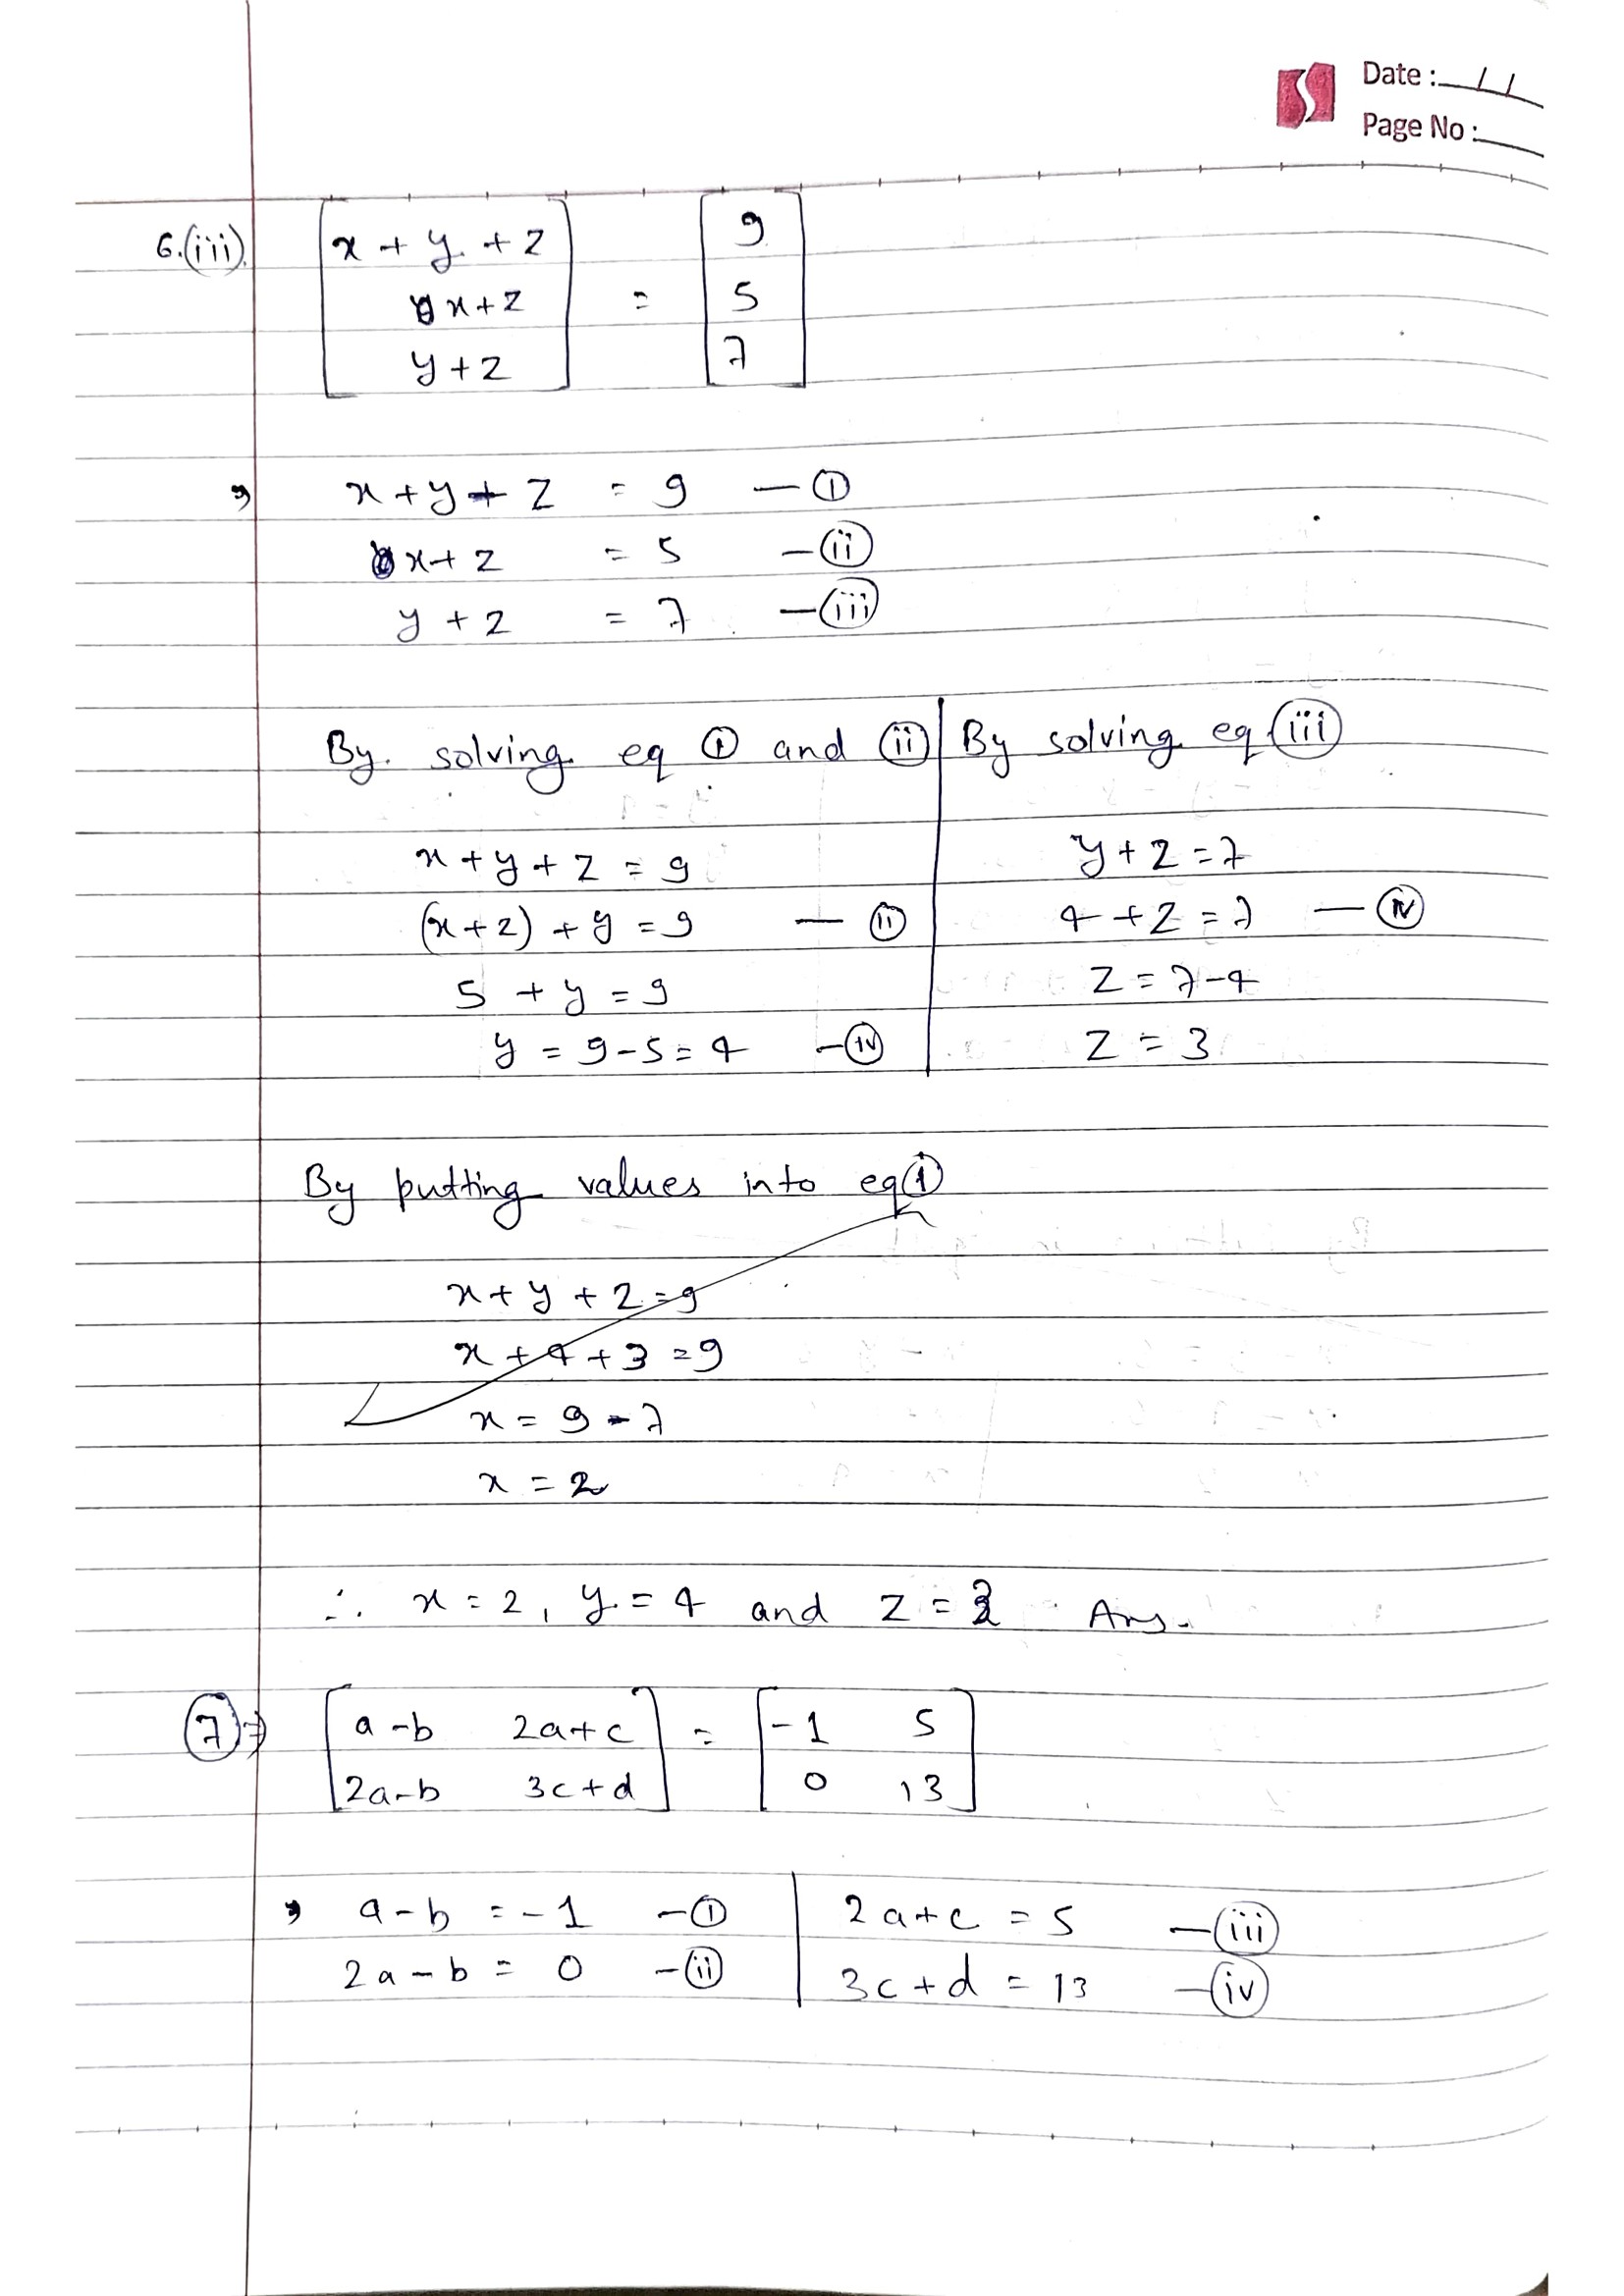 Date : / /
Page No :
6.(iii). [x + y + z] = [9]
[x+z] [5]
[y+z] [7]
x + y + z = 9 — (i)
x + z = 5 — (ii)
y + z = 7 — (iii)
By solving eq (i) and (ii)
x + y + z = 9
(x + z) + y = 9 — (ii)
5 + y = 9
y = 9 - 5 = 4 — (iv)
By solving eq (iii)
y + z = 7
4 + z = 7 — (iv)
z = 7 - 4
z = 3
By putting values into eq (i)
x + y + z = 9
x + 4 + 3 = 9
x = 9 - 7
x = 2
∴ x = 2, y = 4 and z = 3 Ans.
(7)⇒ [a-b 2a+c] = [-1 5]
[2a-b 3c+d] [0 13]
a - b = -1 — (i)
2a - b = 0 — (ii)
2a + c = 5 — (iii)
3c + d = 13 — (iv)